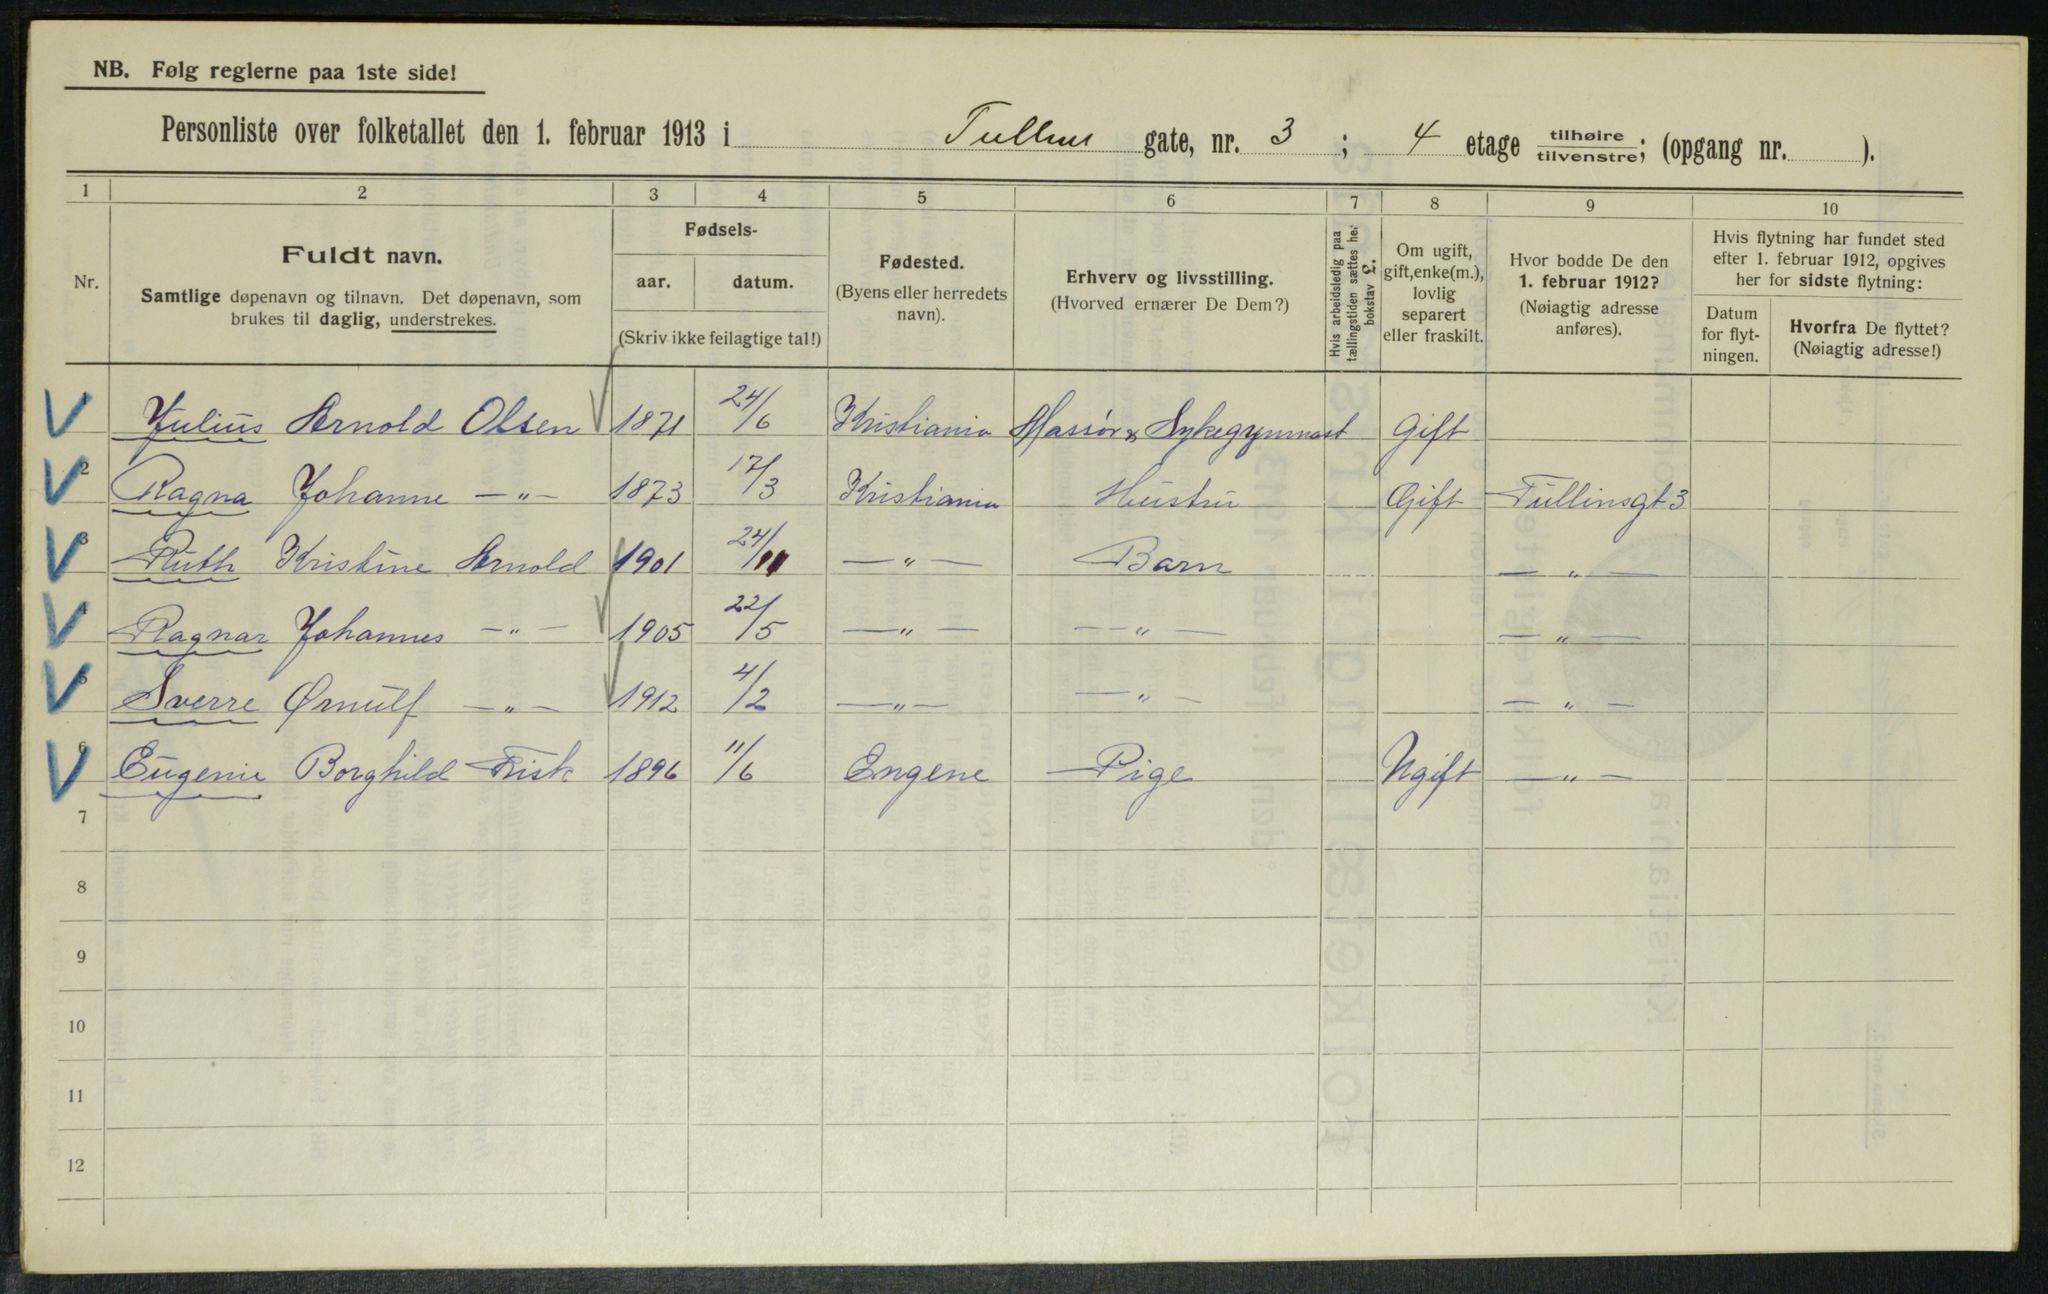 NB. Følg reglerne paa 1ste side!
Personliste over folketallet den 1. februar 1913 i Tullins gate, nr. 3 ; 4 etage tilhøire tilvenstre; (opgang nr. ).
1 2 3 4 5 6 7 8 9 10
Nr.
Fuldt navn.
Samtlige døpenavn og tilnavn. Det døpenavn, som
brukes til daglig, understrekes.
Fødsels-
aar. datum.
(Skriv ikke feilagtige tal!)
Fødested.
(Byens eller herredets
navn).
Erhverv og livsstilling.
(Hvorved ernærer De Dem?)
Hvis arbeidsledig paa
tællingstiden sættes her
bokstav L.
Om ugift,
gift, enke(m.),
lovlig
separert
eller fraskilt.
Hvor bodde De den
1. februar 1912?
(Nøiagtig adresse
anføres).
Hvis flytning har fundet sted
efter 1. februar 1912, opgives
her for sidste flytning:
Datum
for flyt-
ningen.
Hvorfra De flyttet?
(Nøiagtig adresse!)
1 Julius Arnold Olsen 1871 24/6 Kristiania Massør & Sykegymnast Gift
2 Ragna Johanne —"— 1873 17/3 Kristiania Hustru Gift Tullinsgt 3
3 Ruth Kristine Arnold 1901 24/11 —"— Barn —"—
4 Ragnar Johannes —"— 1905 22/5 —"— —"— —"—
5 Sverre Ørnulf —"— 1912 4/2 —"— —"— —"—
6 Eugenie Borghild Frisk 1896 11/6 Engene Pige Ugift —"—
7
8
9
10
11
12